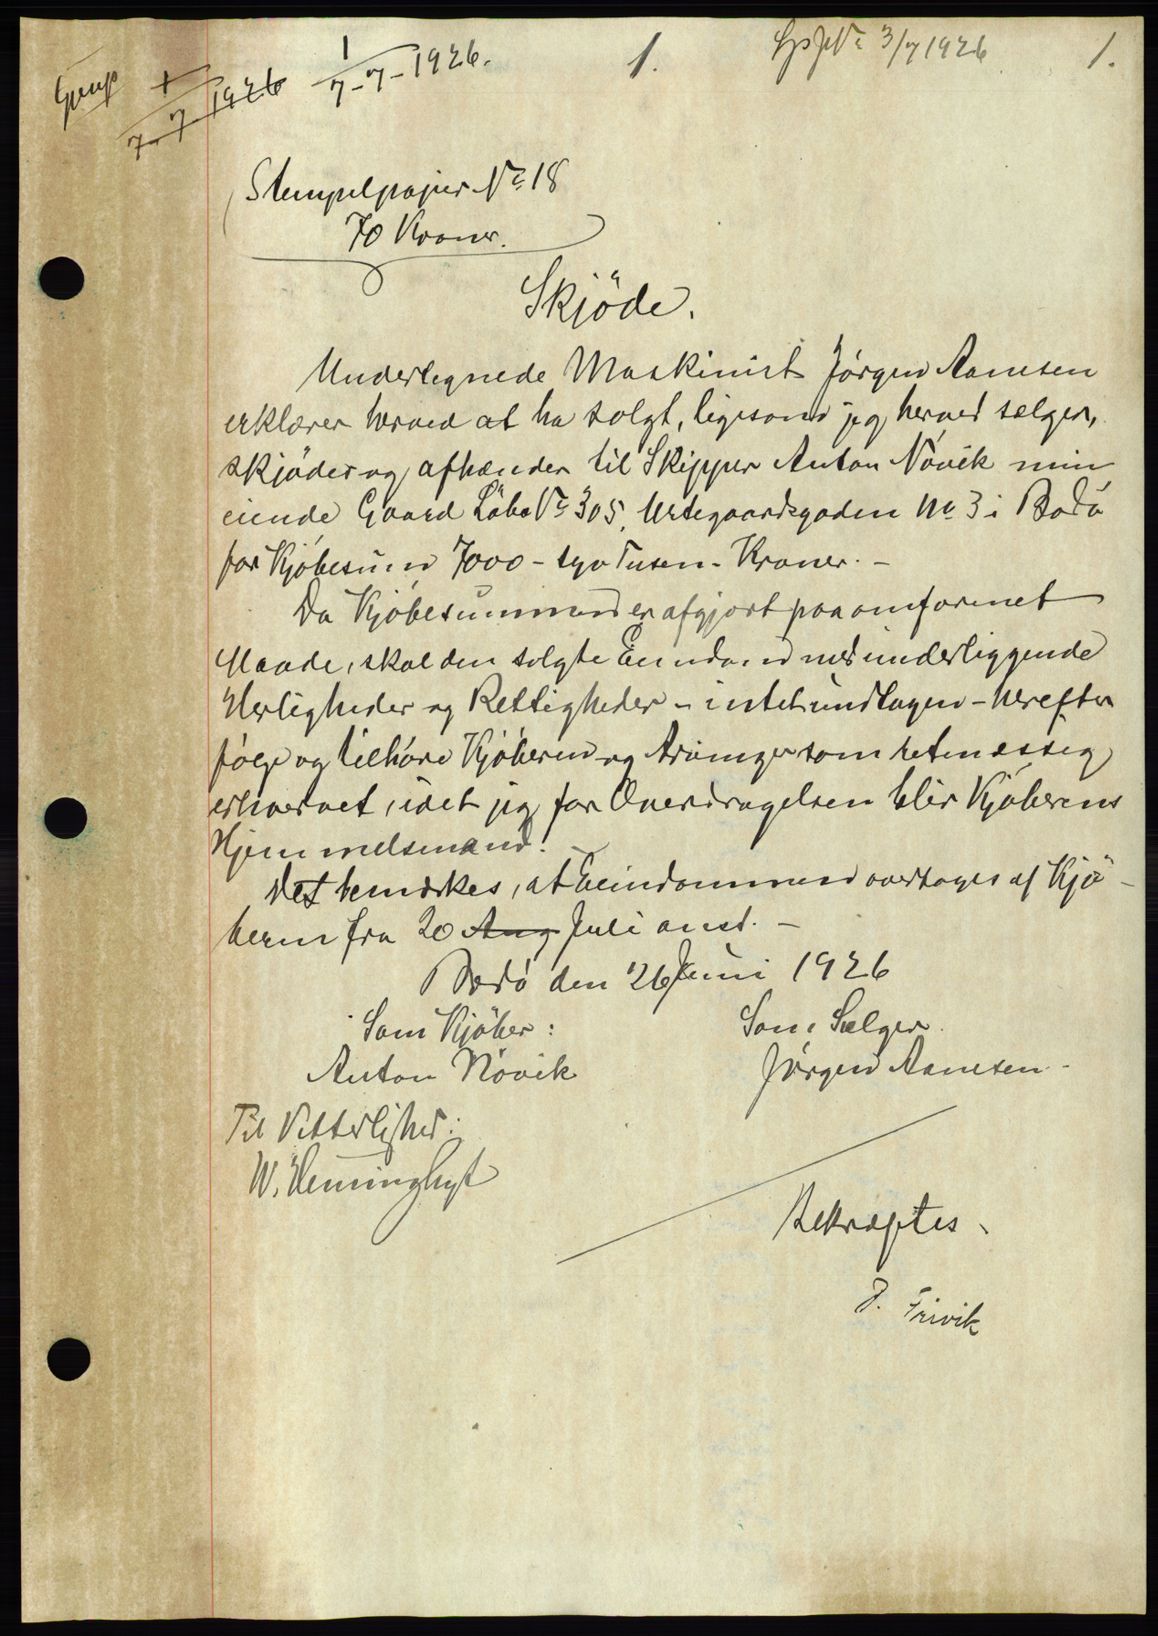 1/7-7-1926.
1.
3/7 1926
1.
1/7-7-1926
Stempelpapir No 18
70 Kroner.
Skjöde.
Undertegnede Maskinist Jörgen Aanesen
erklærer herved at ha solgt, ligesom jeg herved sælger,
skjöder og afhænder til Skipper Anton Növik min
eiende Gaard Löbe No 305, Urtegaardsgaden No 3 i Bodö
for Kjöbesum 7000 - syv Tusen - Kroner. -
Da Kjöbesummen er afgjort paa omforenet
Maade, skal den solgte Eiendom med underliggende
Herligheder og Rettigheder - intet undtagen - herefter
fölge og tilhöre Kjöberen og Arvinger som retmæssig
erhvervet, idet jeg for Overdragelsen blir Kjöberens
Hjemmelsmand. -
Det bemerkes, at Eiendommen overtages af Kjö-
beren fra 20 Aug Juli anst. -
Bodö den 26 Juni 1926
Som Kjöber:
Som Sælger.
Anton Növik
Jörgen Aanesen.
Til Vitterlighed:
W.
Bekræftes.
J. Frivik